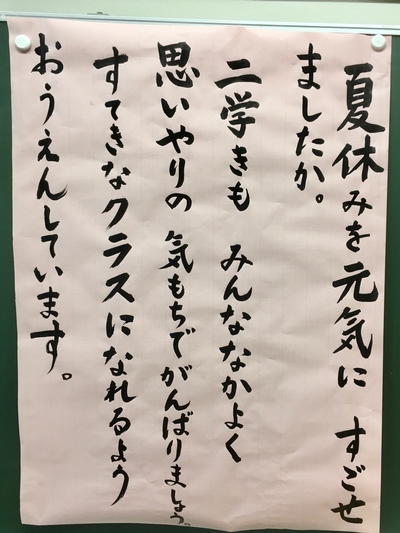 夏休みを元気に すごせ
ましたか。
二学きも みんななかよく
思いやりの 気もちでがんばりましょう。
すてきなクラスになれるよう
おうえんしています。